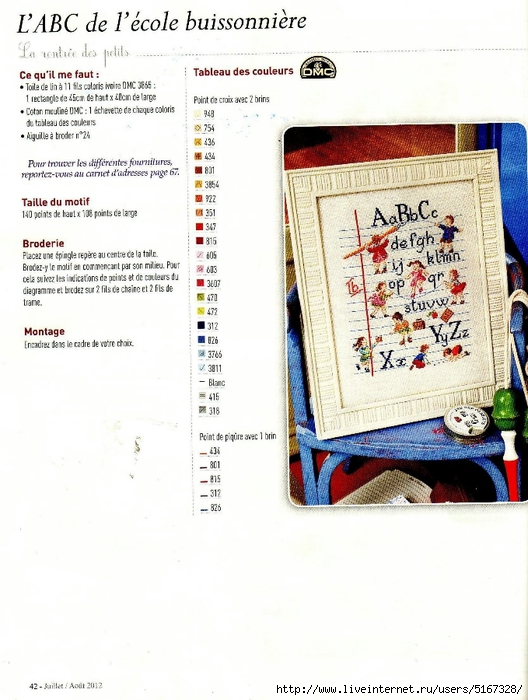 L'ABC de l'école buissonnière
La rentrée des petits
Ce qu'il me faut :
• Toile de lin à 11 fils coloris ivoire DMC 3865 :
1 rectangle de 45cm de haut x 40cm de large
• Coton mouliné DMC : 1 échevette de chaque coloris
du tableau des couleurs
• Aiguille à broder n°24
Pour trouver les différentes fournitures,
reportez-vous au carnet d'adresses page 67.
Taille du motif
140 points de haut x 108 points de large
Broderie
Placez une épingle repère au centre de la toile.
Brodez-y le motif en commençant par son milieu. Pour
cela suivez les indications de points et de couleurs du
diagramme et brodez sur 2 fils de chaîne et 2 fils de
trame.
Montage
Encadrez dans le cadre de votre choix.
Tableau des couleurs
DMC
Point de croix avec 2 brins
948
754
436
434
801
3854
922
351
347
815
605
603
3607
470
472
312
826
3766
3811
Blanc
415
318
Point de piqûre avec 1 brin
434
801
815
312
826
AaBbCc
defgh
ij klmn
16
op qr
stuvw
YyZz
Xx
42 - Juillet / Août 2012
http://www.liveinternet.ru/users/5167328/